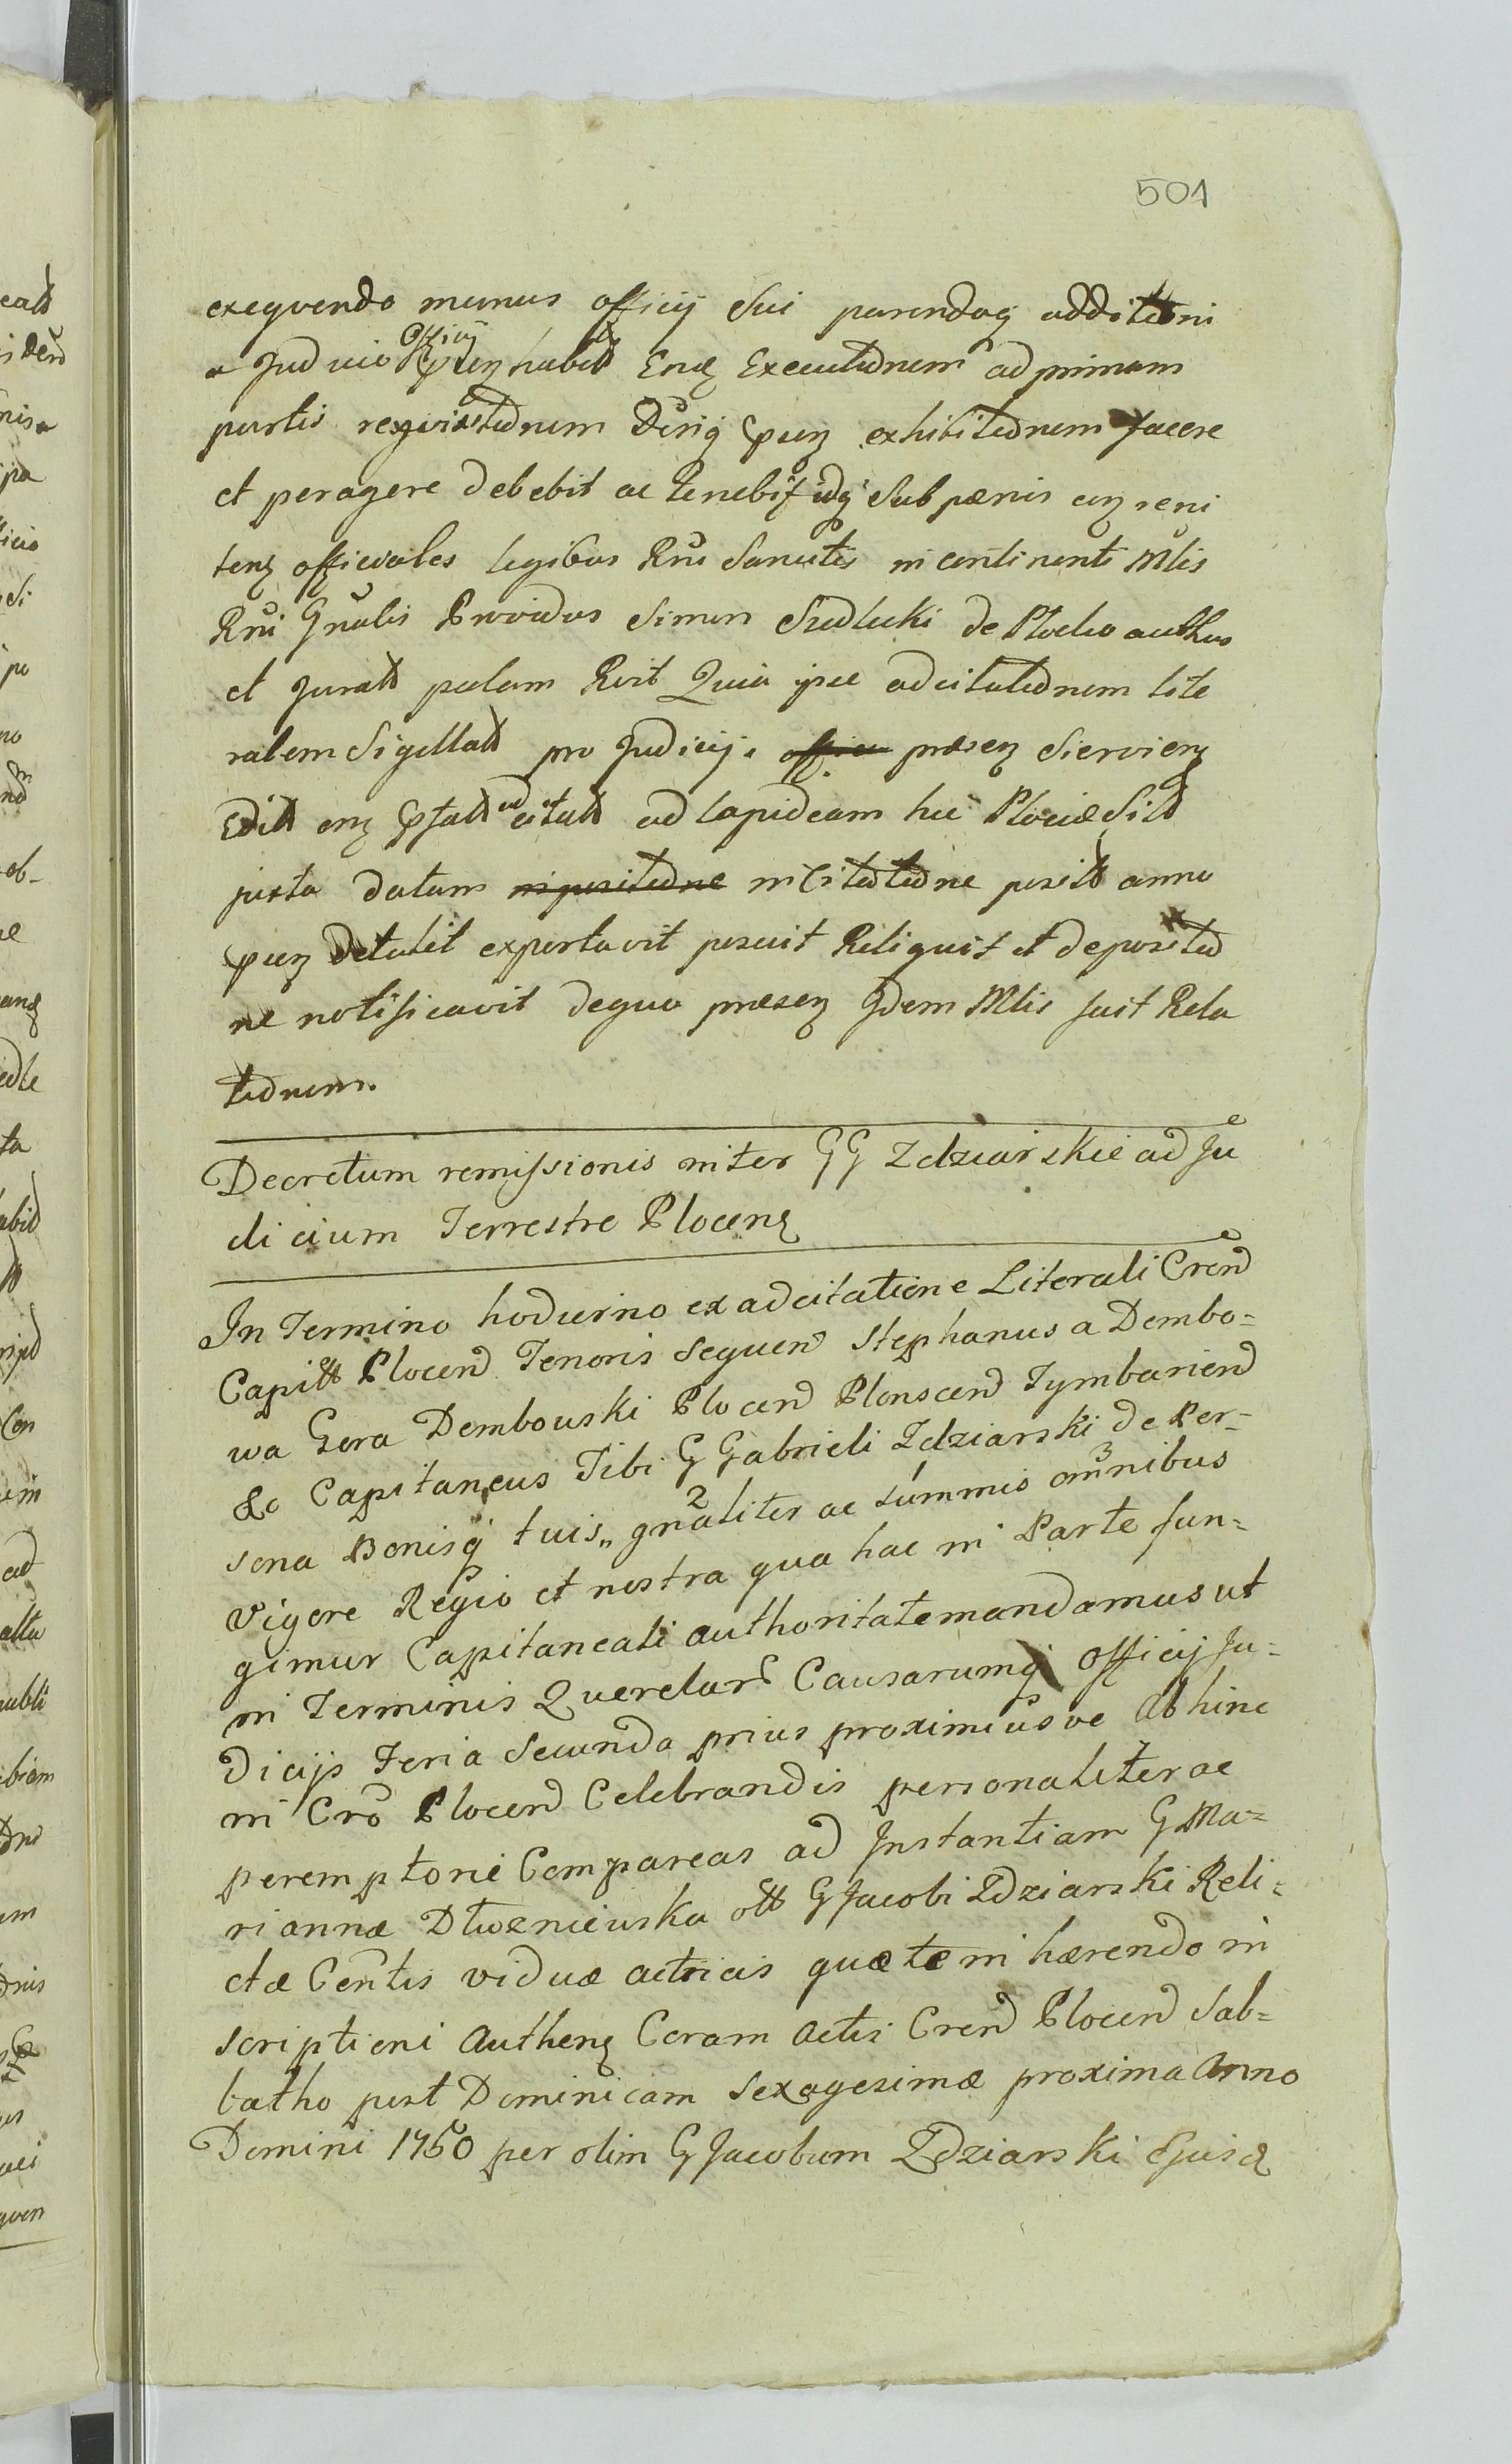 501
exequendo munus officij sui parendoq additioni
a Judicio Officij pnz habit Enq Executionem ad primam
partis requisitionem Derig pnz exhibitionem facere
et peragere debebit ac tenebit idq sub pænis cuz reni
tenz officiales legibus Rni Sancitis in continenti Mlis
Rni Gnalis Providus Simon Siedlecki de Plocko authus
et Jurat palam Rvit Quia ipse adcitationem lite
ralem Sigillat pro Judicijs præsenz Siervienz
Edit enz ad citat ad lapideam hic Plociæ Sit
juxta datam in Citatione posit anno
pnz Detulit exportavit posuit Reliquit et depositio
ne notificavit dequo præsenz Idem Mlis fecit Rela
tionem.
Decretum remissionis inter GG Zdziarskie ad Ju
dicium Terrestre Plocenz
In Termino hodierno ex adcitatione Literali Cren
Capitt Plocen Tenoris Sequen Stephanus a Dembo=
wa Gora Dembowski Plocen Plonscen Tymbarien
&c Capitaneus Tibi G Gabrieli Zdziarski de Per=
sona Bonisq tuis,, gnaliter ac summis omnibus
vigore Regio et nostra qua hac in Parte fun=
gimur Capitaneali authoritate mandamus ut
in Terminis Querelar Causarumq Officij Ju=
dicijs Feria Secunda prius proximiusve Abhinc
in Cro Plocen Celebrandis personaliter ac
peremptorie Compareas ad Instantiam G Ma=
riannæ Dłużniewska ott G Jacobi Zdziarski Reli=
ctæ Contis viduæ actricis quæ te in hærendo in
scriptioni Authenz Coram Actis Cren Plocen Sab=
batho post Dominicam Sexagesimæ proxima Anno
Domini 1750 per olim G Jacobum Zdziarski Ejusd